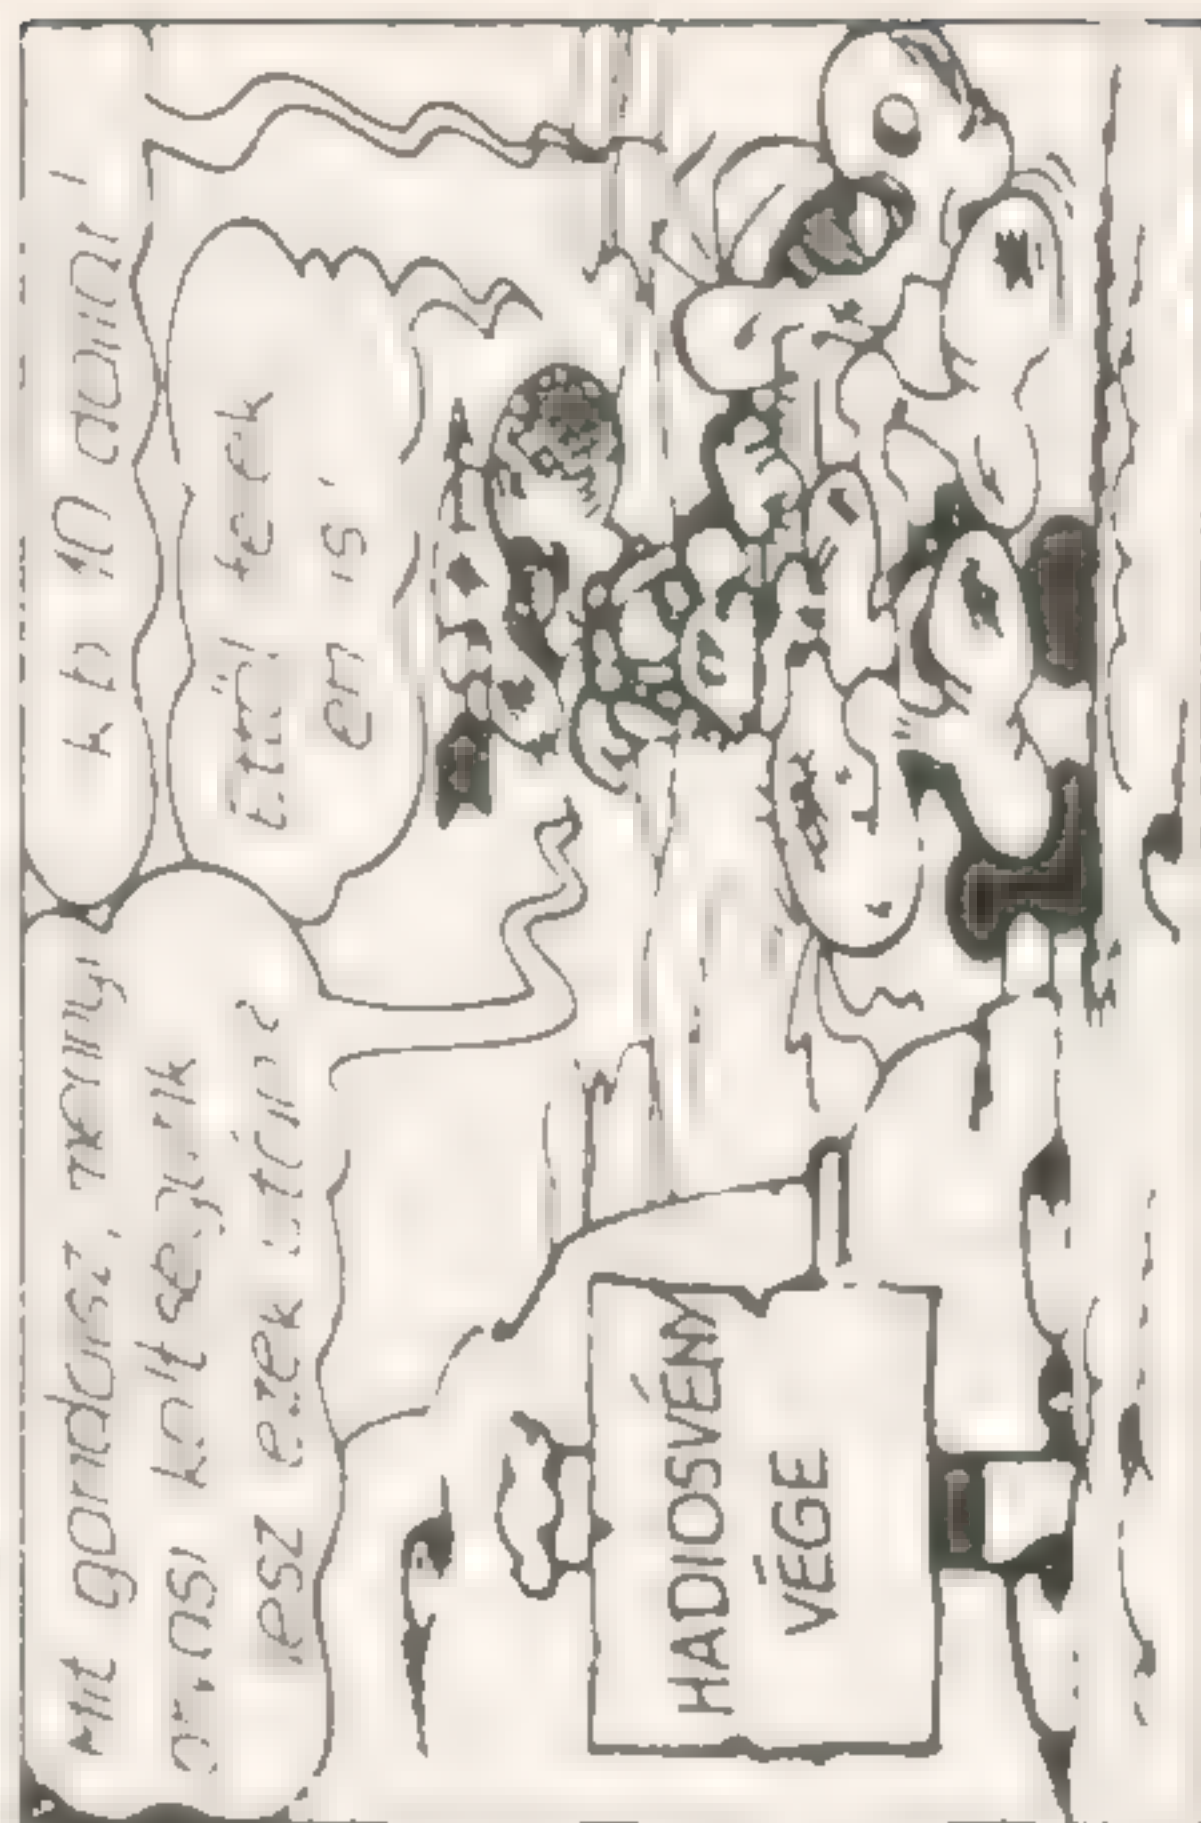 Mit gondolsz, mennyi
orvosi költségük
lesz ezek után?
kb 10 dollár!
Ettől félek
én is!
HADIÖSVÉNY
VÉGE